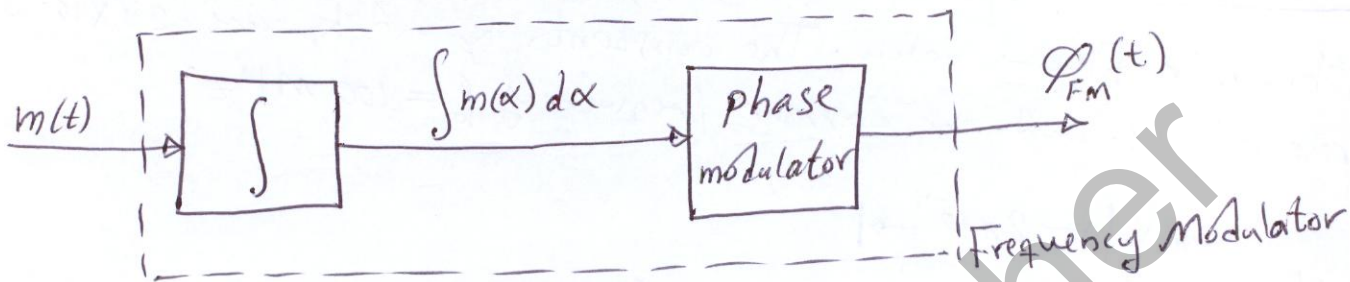 m(t)
∫
∫m(α) dα
phase
modulator
φ_FM(t)
Frequency Modulator